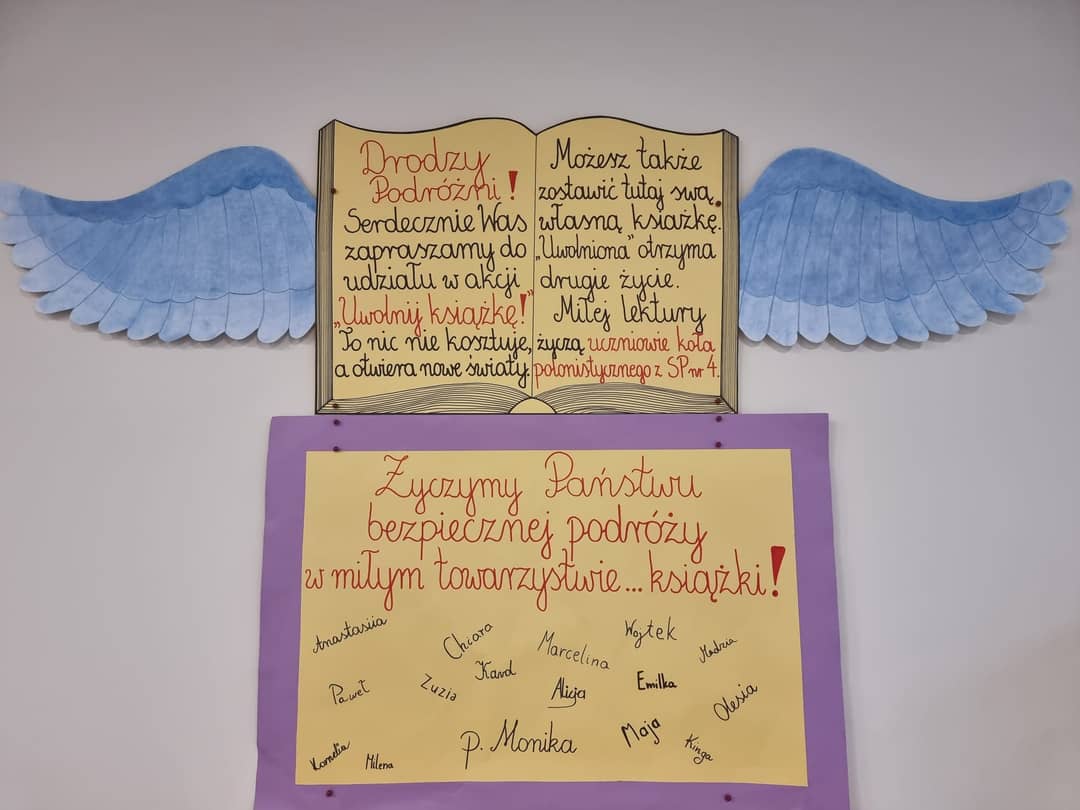 Drodzy
Podróżni!
Serdecznie Was
zapraszamy do
udziału w akcji
„Uwolnij książkę!"
To nic nie kosztuje,
a otwiera nowe światy.
Możesz także
zostawić tutaj swą
własną książkę.
„Uwolniona" otrzyma
drugie życie.
Miłej lektury
życzą uczniowie koła
polonistycznego z SP nr 4.
Życzymy Państwu
bezpiecznej podróży
w miłym towarzystwie... książki!
Anastasiia
Chiara
Marcelina
Wojtek
Madzia
Paweł
Zuzia
Karol
Alicja
Emilka
Olesia
Kornelia
Milena
p. Monika
Maja
Kinga